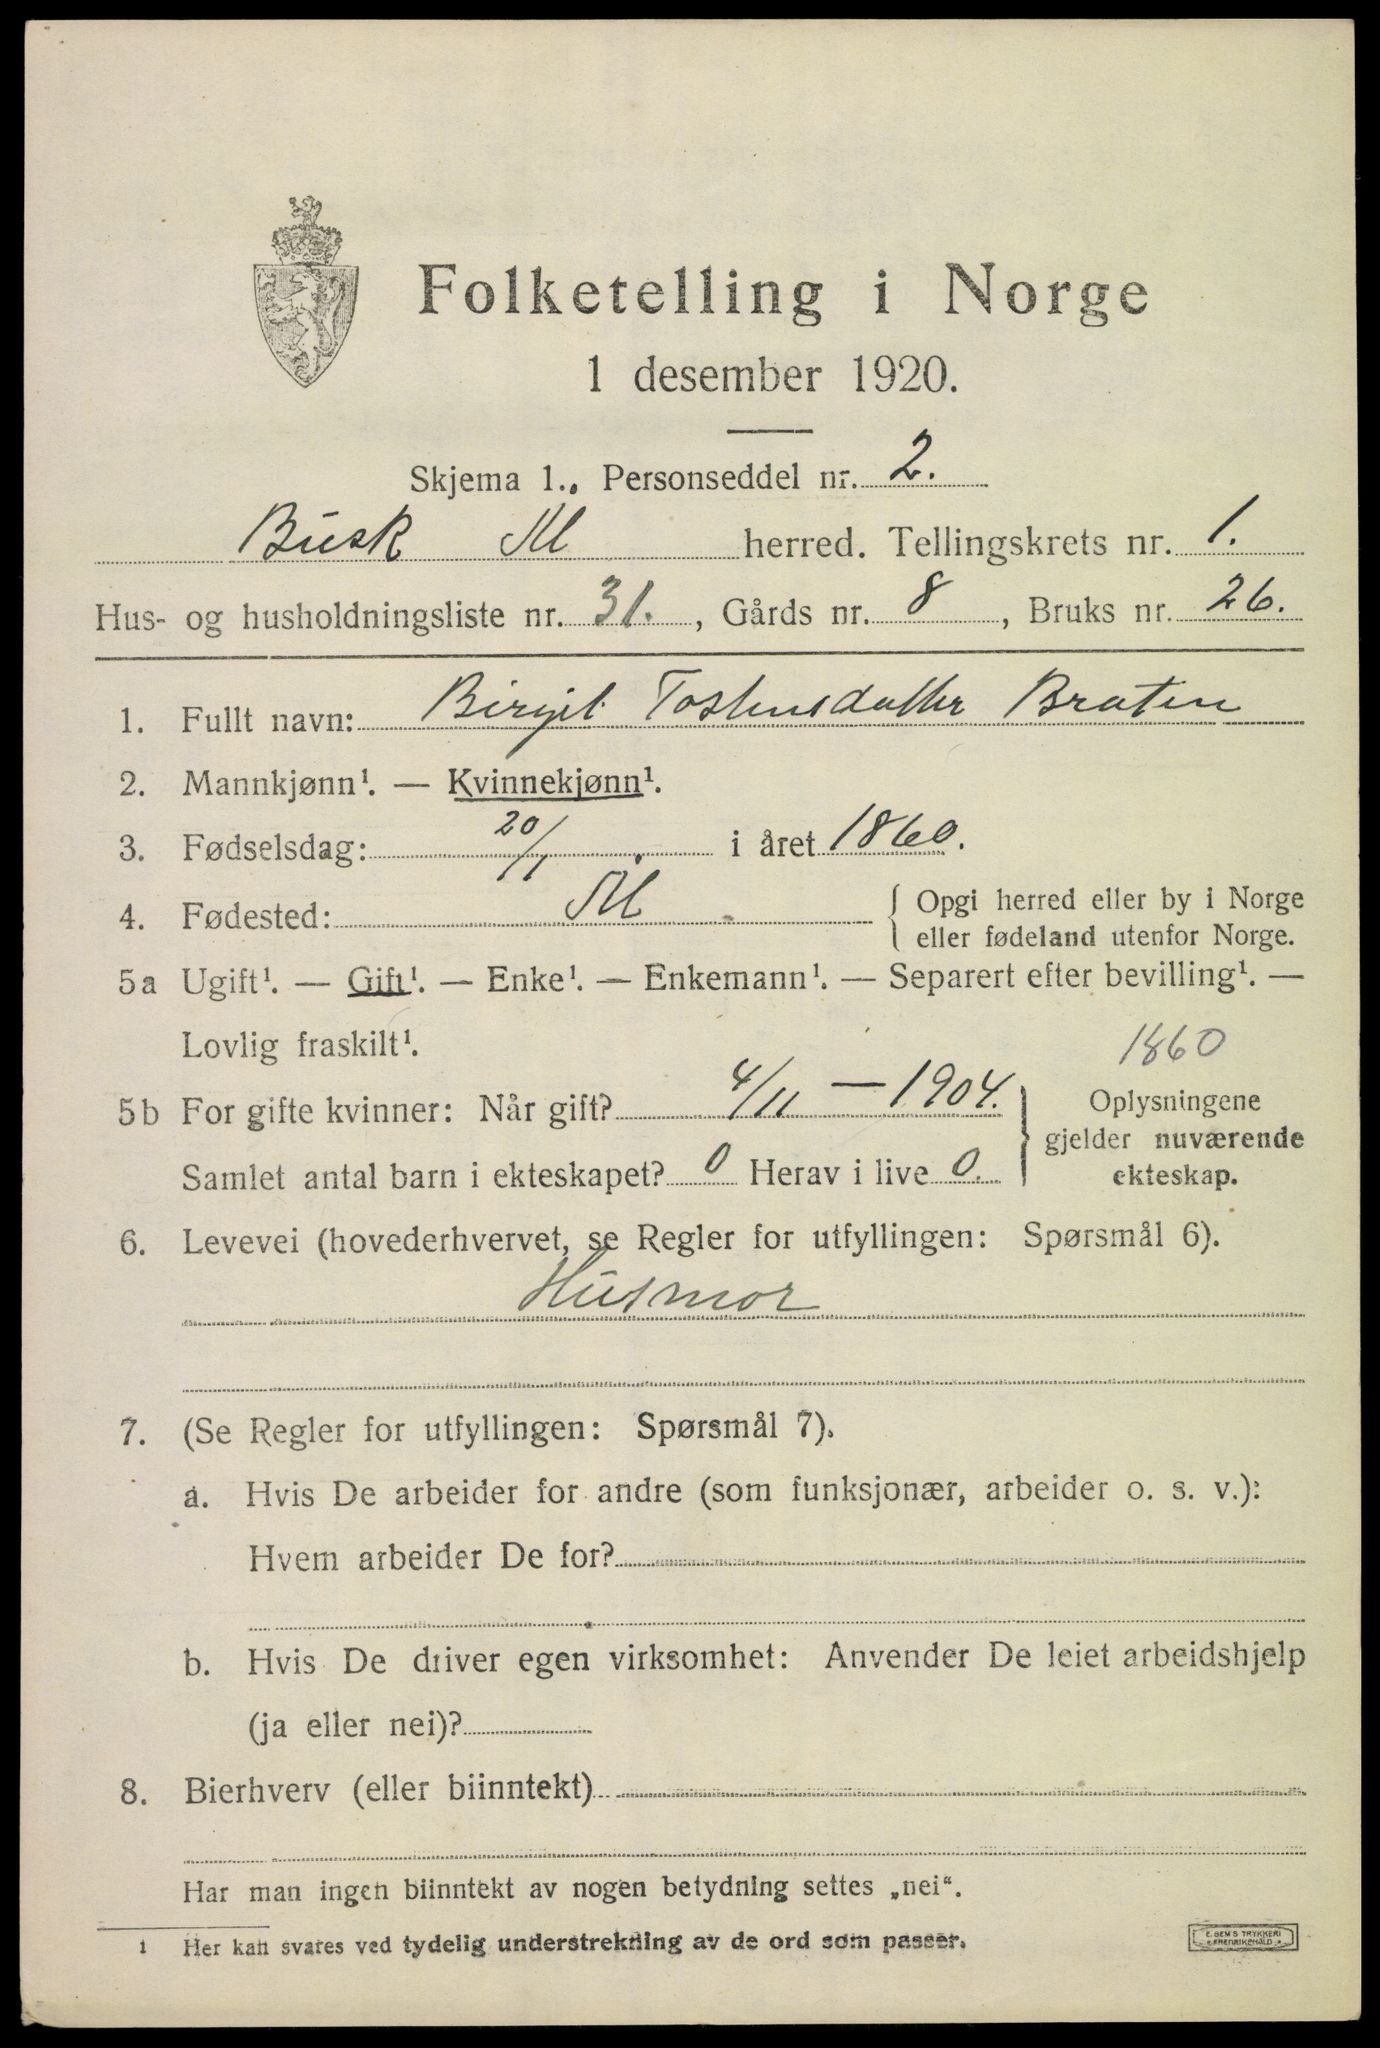 Folketelling i Norge
1 desember 1920.
Skjema 1., Personseddel nr. 2.
Busk Ål herred. Tellingskrets nr. 1.
Hus- og husholdningsliste nr. 31., Gårds nr. 8, Bruks nr. 26.
1. Fullt navn: Birgit Tostensdatter Braten
2. Mannkjønn¹. — Kvinnekjønn¹.
3. Fødselsdag: 20/1 i året 1860.
4. Fødested: Ål { Opgi herred eller by i Norge
eller fødeland utenfor Norge.
5a Ugift¹. — Gift¹. — Enke¹. — Enkemann¹. — Separert efter bevilling¹. —
Lovlig fraskilt¹.
1860
5b For gifte kvinner: Når gift? 4/11 — 1904. } Oplysningene
gjelder nuværende
Samlet antal barn i ekteskapet? 0 Herav i live 0.
ekteskap.
6. Levevei (hovederhvervet, se Regler for utfyllingen: Spørsmål 6).
Husmor
7. (Se Regler for utfyllingen: Spørsmål 7).
a. Hvis De arbeider for andre (som funksjonær, arbeider o. s. v.):
Hvem arbeider De for?
b. Hvis De driver egen virksomhet: Anvender De leiet arbeidshjelp
(ja eller nei)?
8. Bierhverv (eller biinntekt)
Har man ingen biinntekt av nogen betydning settes „nei“.
1 Her kan svares ved tydelig understrekning av de ord som passer.
E. SEM'S TRYKKERI
FREDRIKSHALD